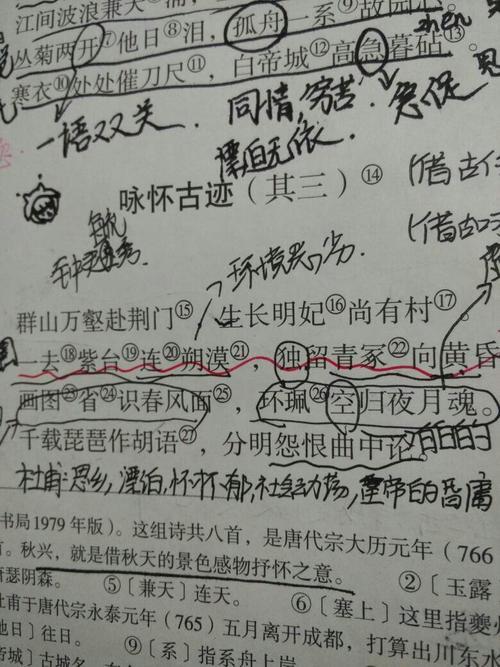 江间波浪兼天
丛菊两开⑦他日⑧泪，孤舟一系⑨故园
寒衣⑩处处催刀尺⑪，白帝城⑫高急暮砧⑬
一语双关 同情,穷苦. 急促
漂泊无依.
咏怀古迹（其三）⑭
(借古
(借古
环境恶劣.
群山万壑赴荆门⑮，生长明妃⑯尚有村⑰。
一去⑱紫台⑲连⑳朔漠㉑，独留青冢㉒向黄昏
画图㉓省㉔识春风面㉕，环珮㉖空归夜月魂。
千载琵琶作胡语㉗，分明怨恨曲中论。
杜甫:思乡,漂泊,怀才不郁,社会动荡,皇帝的昏庸
书局1979年版）。这组诗共八首，是唐代宗大历元年（766
秋兴，就是借秋天的景色感物抒怀之意。 ②〔玉露
萧瑟阴森。 ⑤〔兼天〕连天。 ⑥〔塞上〕这里指夔州
杜甫于唐代宗永泰元年（765）五月离开成都，打算出川东
他日〕往日。 ⑨〔系〕指系舟上岸
帝城〕古城名